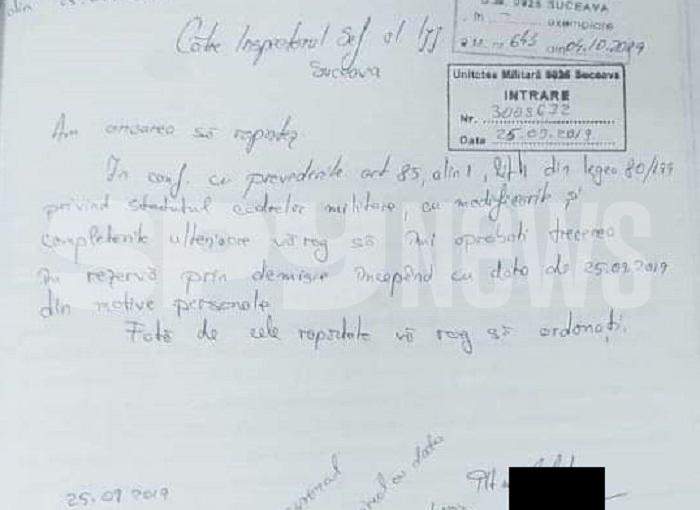 din
0826 SUCEAVA
exemplare
643 din 04.10.2019
Către Inspectorul Șef al IJJ
Suceava
Unitatea Militară 0826 Suceava
INTRARE
Nr. 3008672
Data 25.09.2019
Am onoarea să raportez
În conf. cu prevederile art 85, alin 1, lit h din legea 80/
privind statutul cadrelor militare, cu modificările și
completările ulterioare vă rog să îmi aprobați trecerea
în rezervă prin demisie începând cu data de 25.09.2019
din motive personale.
Față de cele raportate vă rog să ordonați.
SPYNEWS
data
25.09.2019